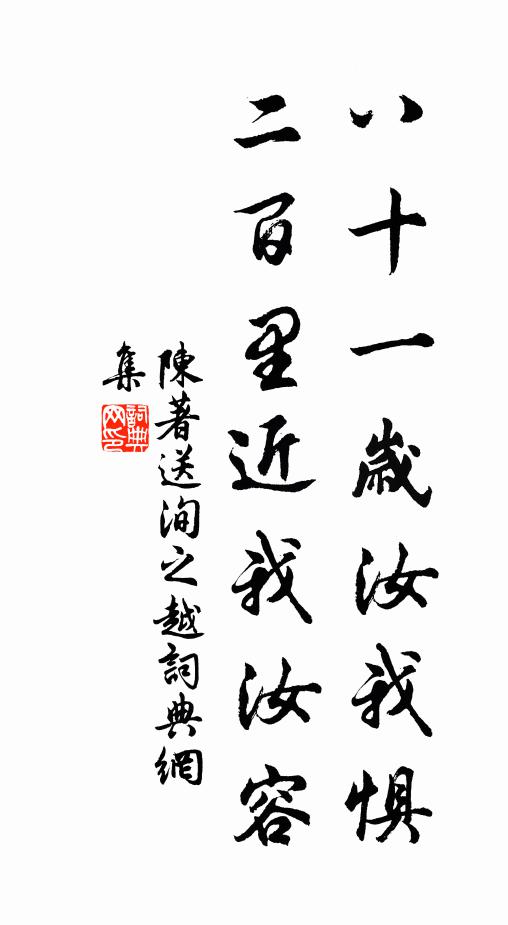 八十一歲汝我懼
二百里近我汝容
陳著送洵之越詞典網
集
詞典網印